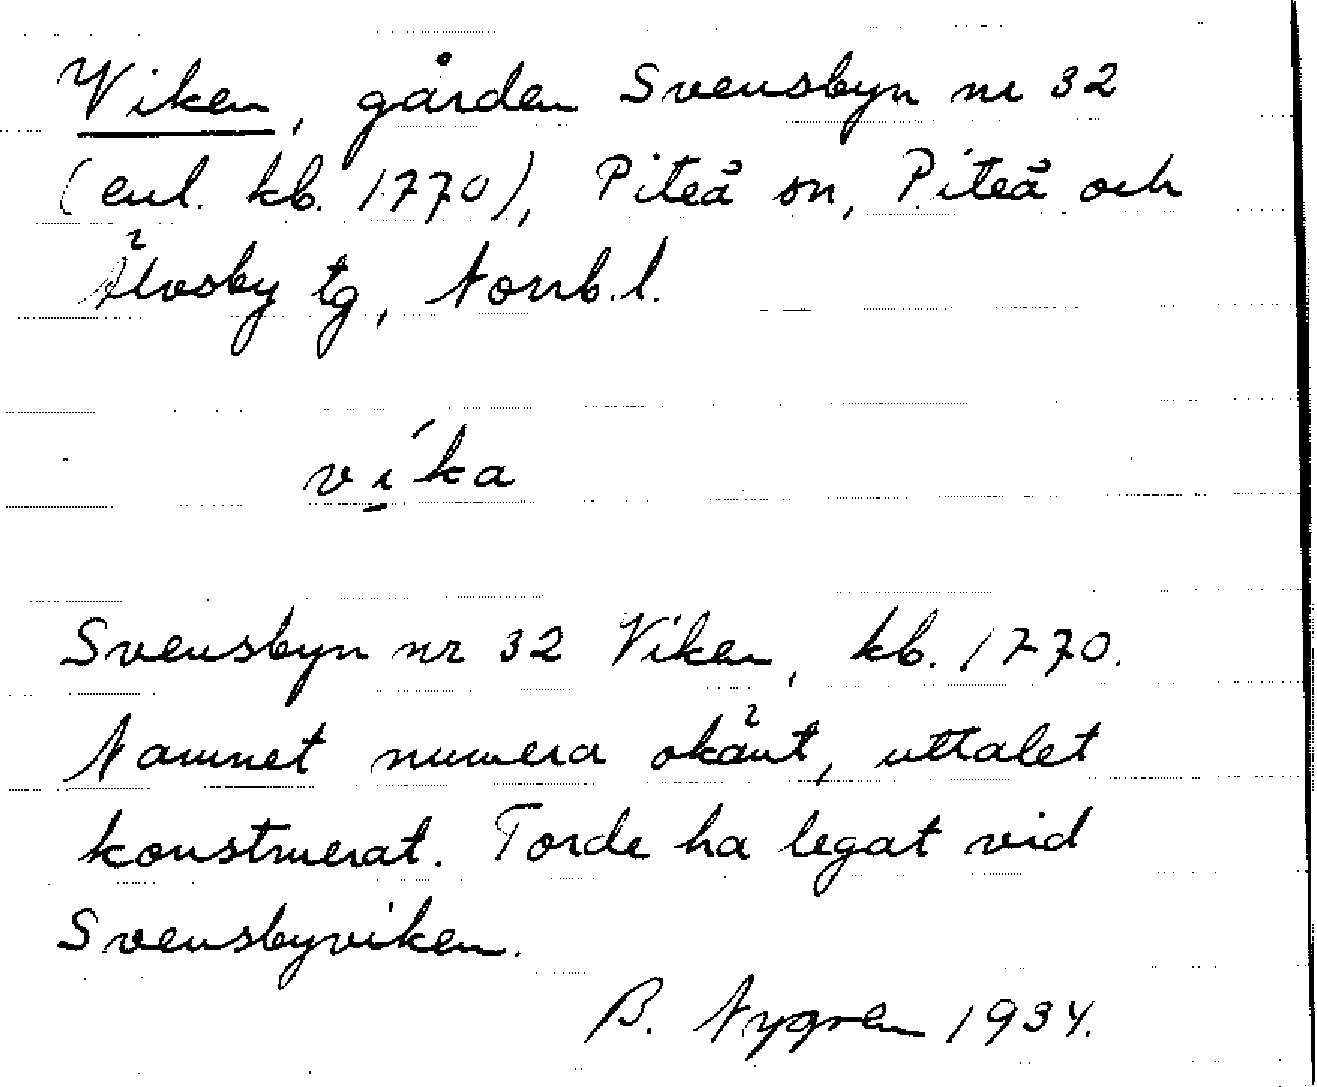 Viken, gården Svensbyn nr 32
(enl. kb. 1770), Piteå sn, Piteå och
Älvsby tg, Norrb.l.
ví̱ka
Svensbyn nr 32 Viken, kb. 1770.
Namnet numera okänt, uttalet
konstruerat. Torde ha legat vid
Svensbyviken.
B. Nygren 1934.